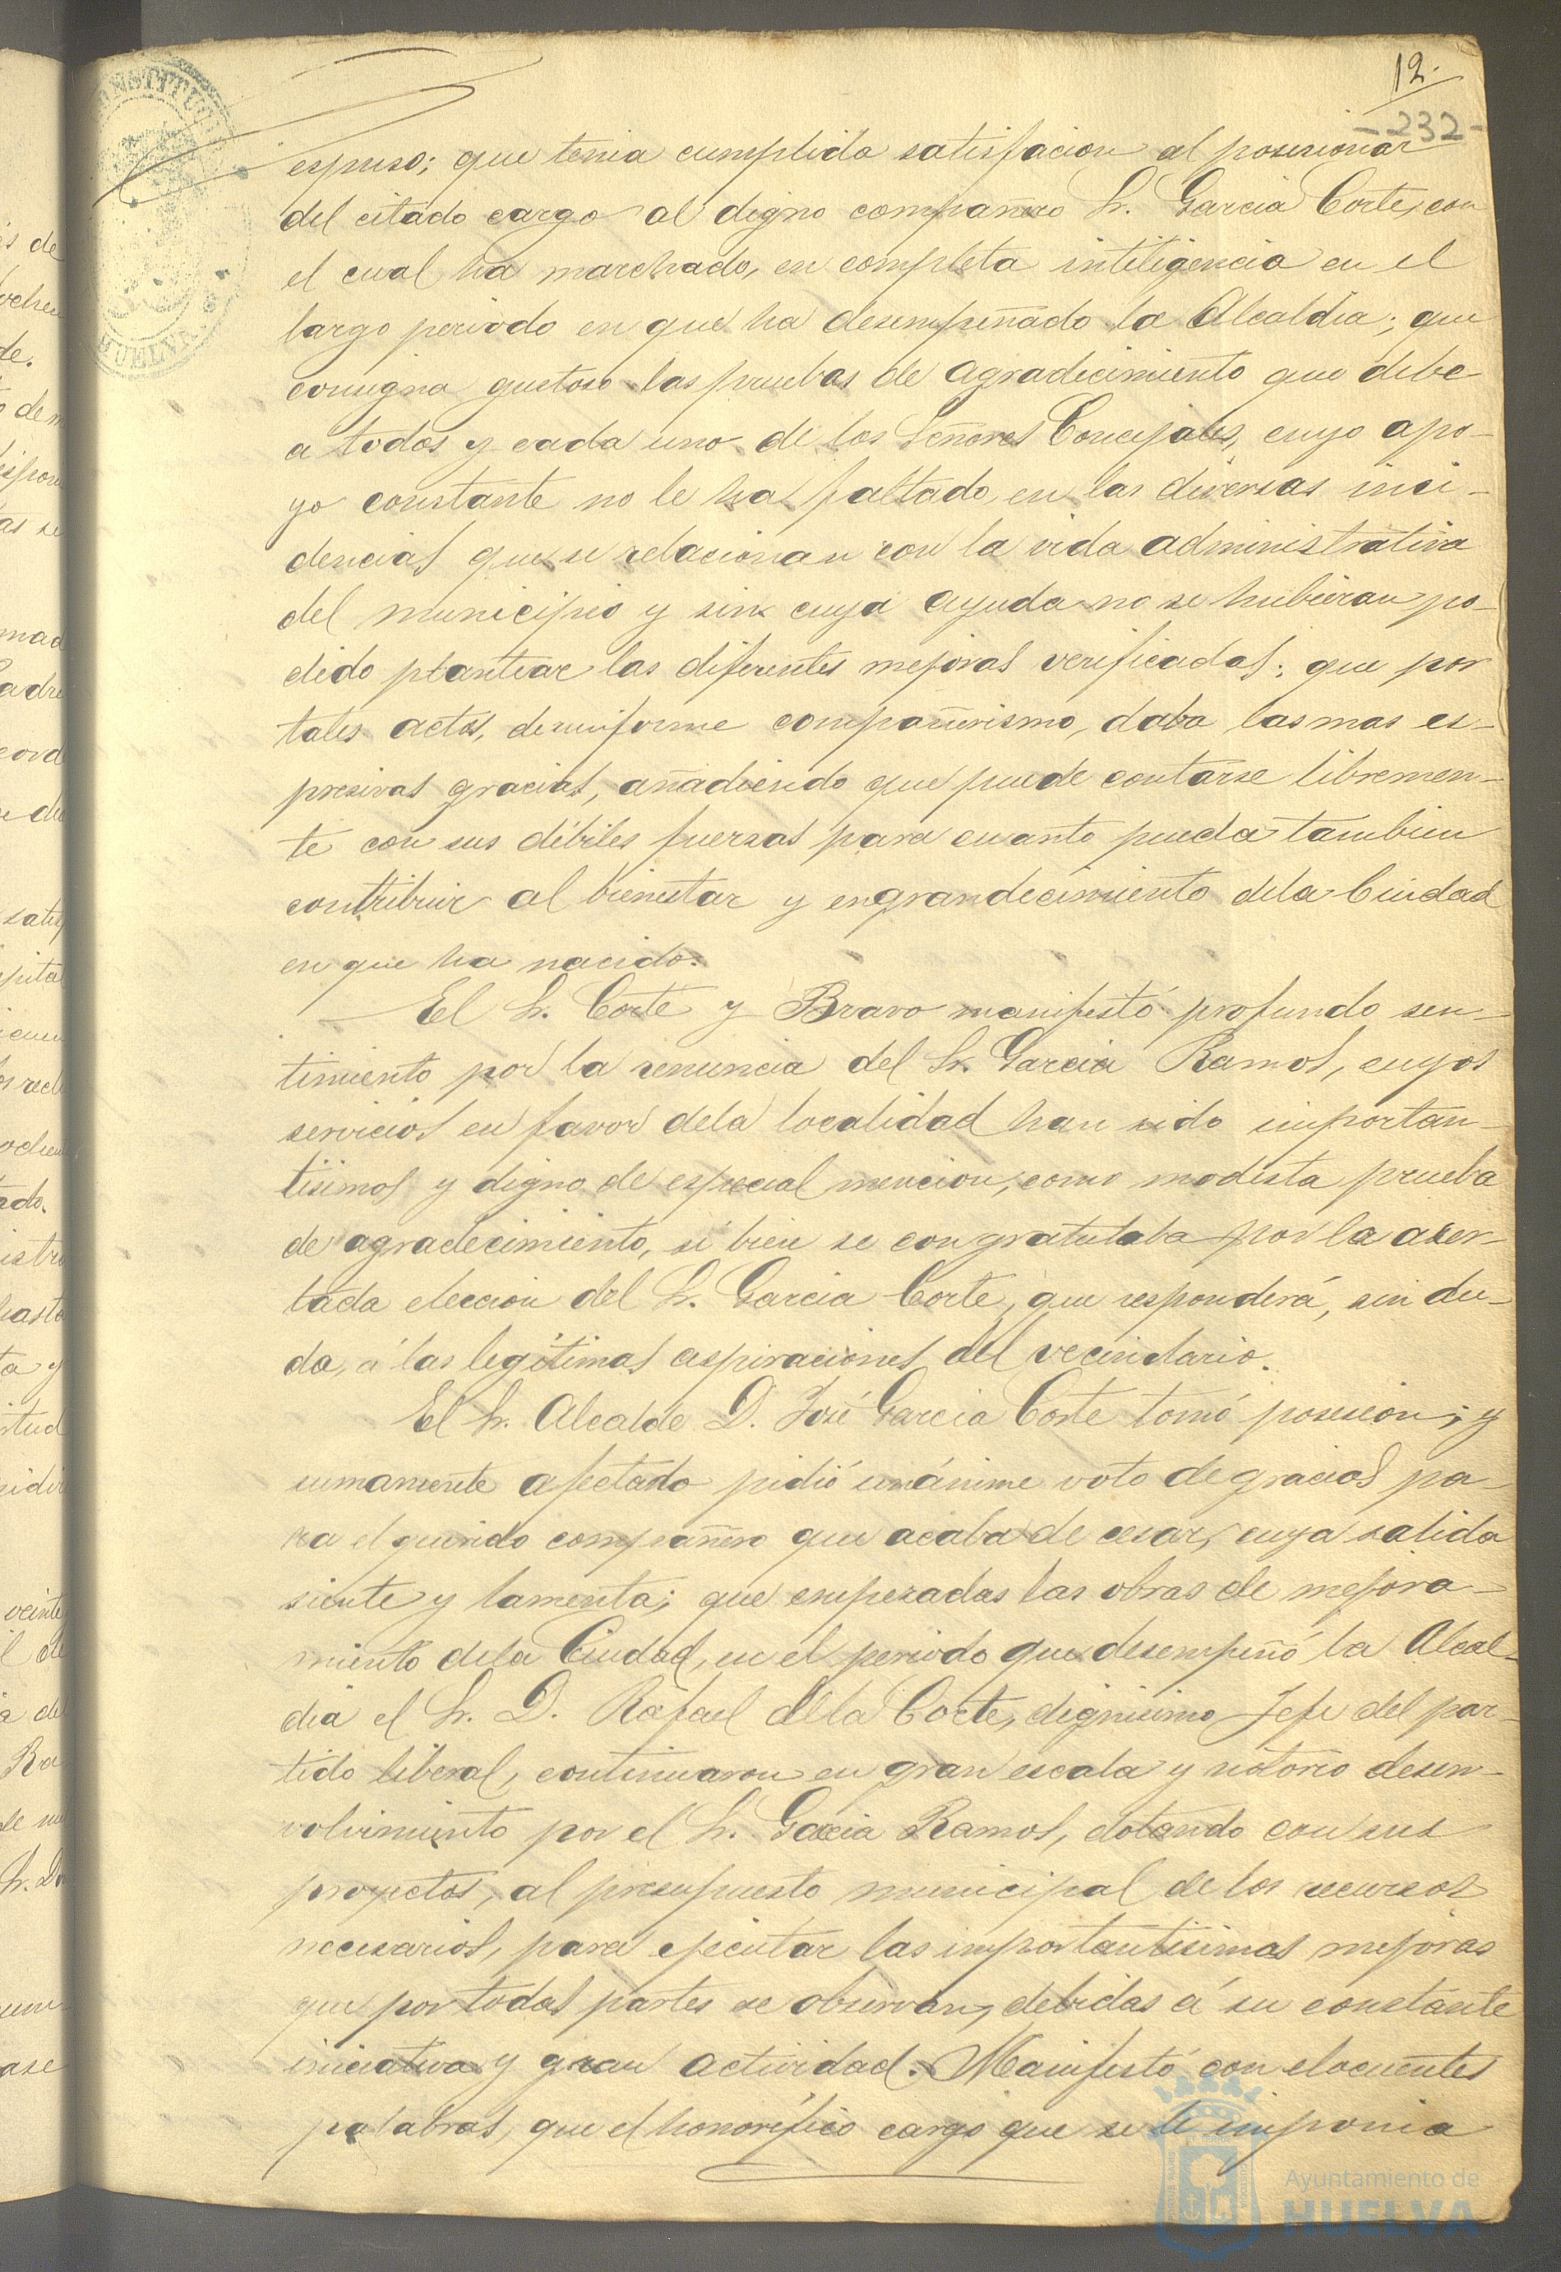 12.
-232-
espuso; que tenia cumplida satisfacion al posesionar
del citado cargo al digno compañero Sr. Garcia Corte, con
el cual ha marchado, en completa inteligencia en el
largo periodo en que ha desempeñado la Alcaldia; que
consigna gustoso las pruebas de agradecimiento que debe
a todos y cada uno de los Señores Concejales, cuyo apo-
yo constante no le ha faltado, en las diversas inci-
dencias que se relacionan con la vida administrativa
del municipio y sin cuya ayuda no se hubieran po-
dido plantear las diferentes mejoras verificadas; que por
tales actos, de uniforme compañerismo, daba las mas es-
presivas gracias, añadiendo que puede contarse libremen-
te con sus débiles fuerzas para cuanto pueda tambien
contribuir al bienestar y engrandecimiento dela Ciudad
en que ha nacido.
El Sr. Corte y Bravo manifestó profundo sen-
timiento por la renuncia del Sr. Garcia Ramos, cuyos
servicios en favor dela localidad han sido importan-
tisimos y digno de especial mencion, como modesta prueba
de agradecimiento, si bien se congratulaba por la acer-
tada eleccion del Sr. Garcia Corte, que responderá, sin du-
da, á las legítimas aspiraciones del vecindario.
El Sr. Alcalde D. José Garcia Corte tomó posesion; y
sumamente afectado pidió unánime voto de gracias pa-
ra el querido compañero que acaba de cesar, cuya salida
siente y lamenta; que empezadas las obras de mejora-
miento dela Ciudad, en el periodo que desempeñó la Alcal-
dia el Sr. D. Rafael dela Corte, dignisimo Jefe del par-
tido liberal, continuaron en gran escala y notorio desen-
volvimiento por el Sr. Garcia Ramos, dotando con sus
proyectos, al presupuesto municipal de los recursos
necesarios, para ejecutar las importantisimas mejoras
que por todas partes se observan, debidas á su constante
iniciativa y gran actividad. Manifestó con elocuentes
palabras, que el honorífico cargo que se le imponia
Ayuntamiento de
HUELVA